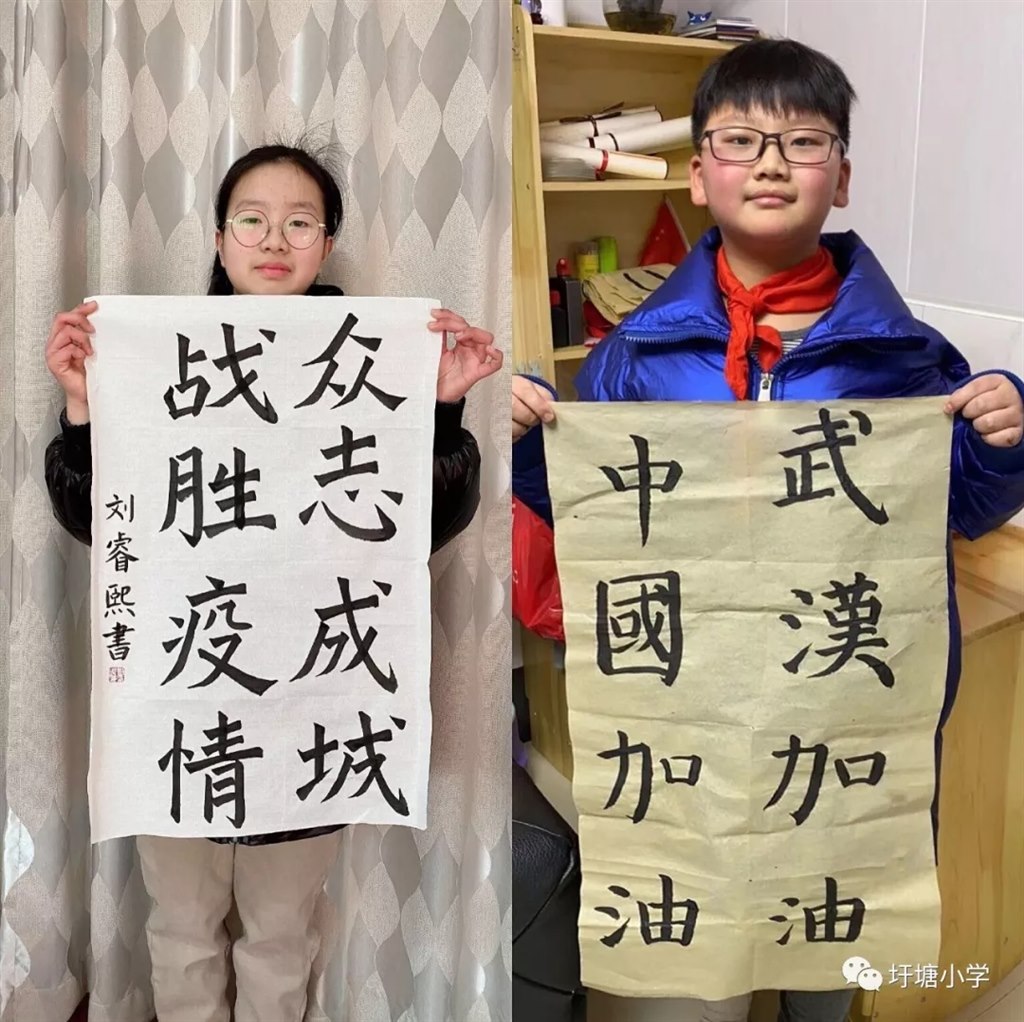 众志成城
战胜疫情
刘睿熙書
武漢加油
中國加油
圩塘小学